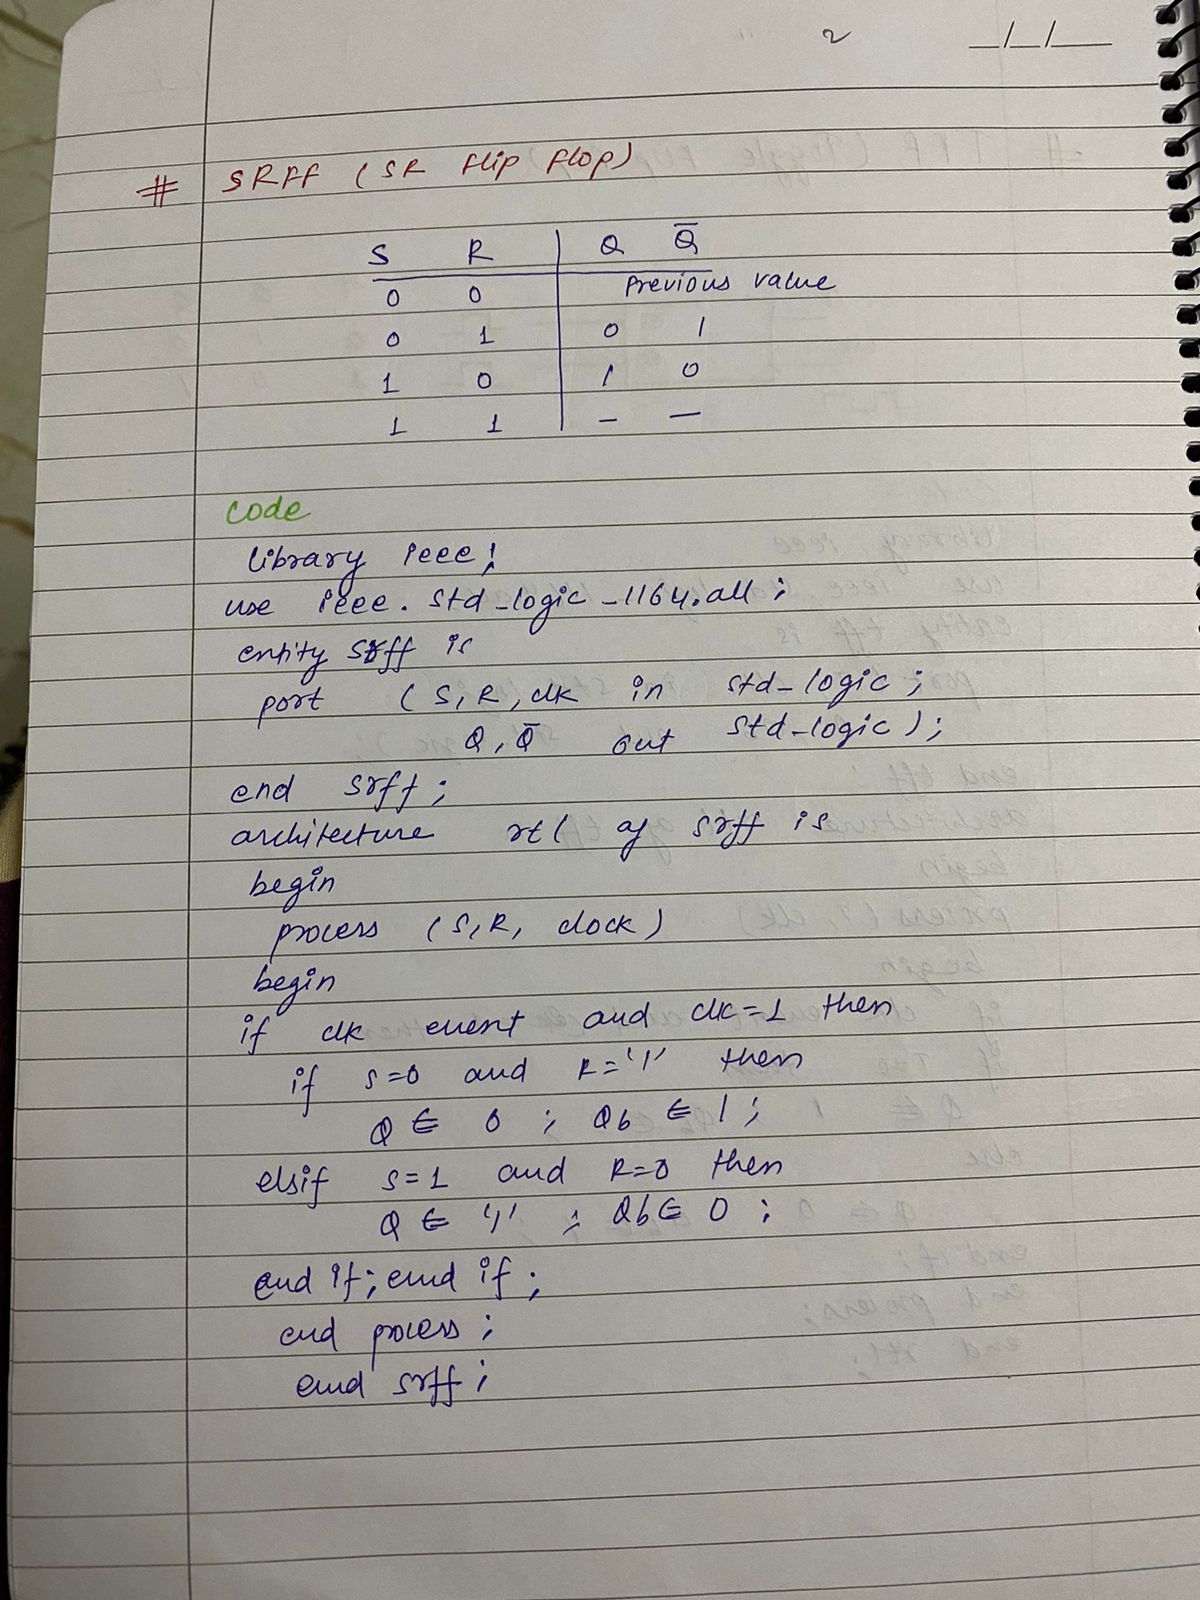 2 _/_/__
# SRFF (SR flip flop)
S R Q Q̄
0 0 Previous value
0 1 0 1
1 0 1 0
1 1 — —
code
library ieee;
use ieee.std_logic_1164.all;
entity srff is
port (S,R,clk in std_logic;
Q,Q̄ out std_logic);
end srff;
architecture rtl of srff is
begin
process (S,R, clock)
begin
if clk event and clk=1 then
if S=0 and R='1' then
Q ⋸ 0 ; Qb ⋸ 1;
elsif S=1 and R=0 then
Q ⋸ '1' ; Qb⋸ 0 ;
end if; end if;
end process;
end srff;